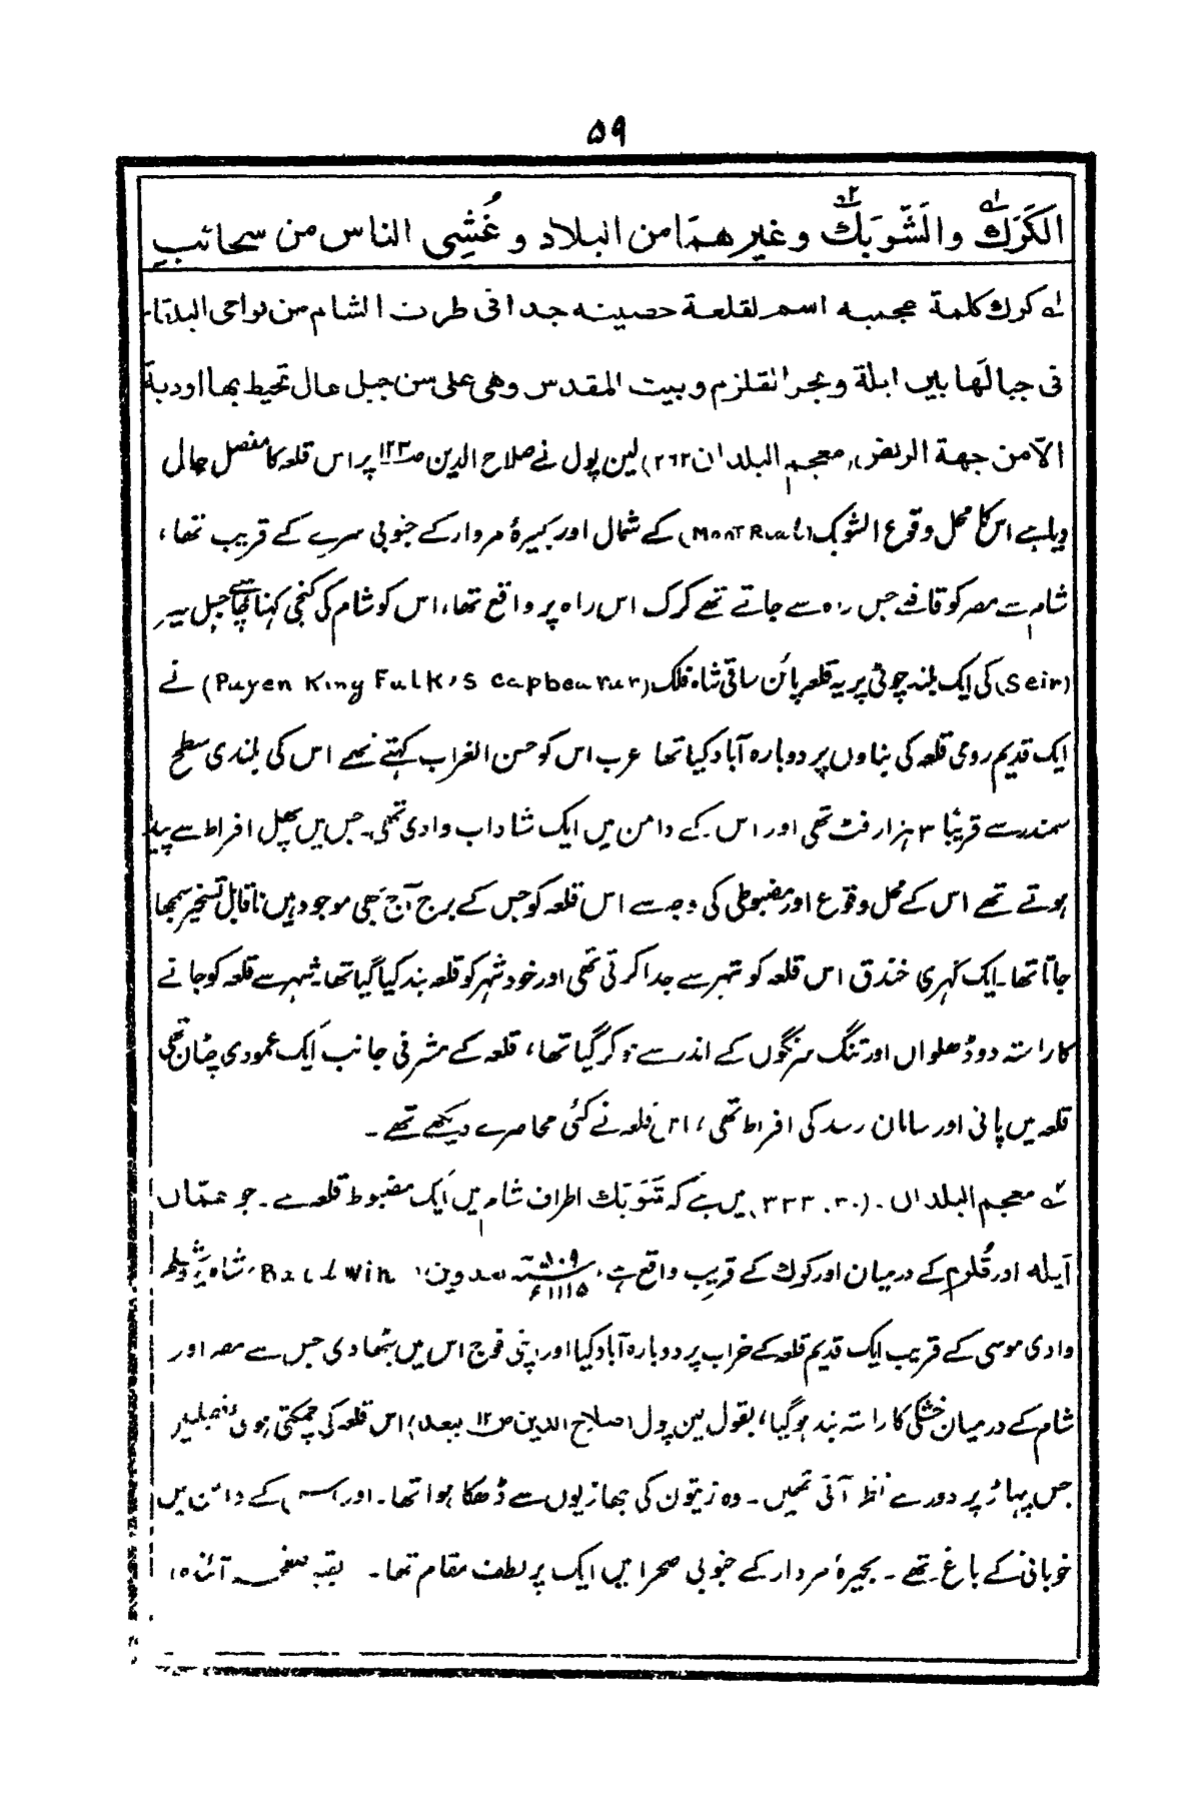 ۵۹
الكَرَك۱ والشَّوبَك۲ وغيرهما من البلاد وغُشِی الناس من سحائبِ
۱ے کرك كلمة عجميه اسم لقلعة حصينه جدا فى طرف الشام من نواحى البلقاء
فى جبالها بين ايلة وبحر القلزم وبيت المقدس وهى على سن جبل عال تحيط بها اودية
الّا من جهة الربض (معجم البلدان ۲۶۲) لین پول نے صلاح الدین ص۱۲۳ پر اس قلعہ کا مفصل حال
دیاہے اس کا محل وقوع الشوبک (Mont Real) کے شمال اور بحیرۂ مردار کے جنوبی سرے کے قریب تھا،
شام سے مصر کو قافلے جس راہ سے جاتے تھے کرک اس راہ پر واقع تھا، اس کو شام کی کنجی کہنا چاہیے جبل سیر
(Seir) کی ایک بلند چوٹی پر یہ قلعہ پائن ساقی شاہ فلک (Payen King Fulk's Capbearur) نے
ایک قدیم رومی قلعہ کی بناوں پر دوبارہ آباد کیا تھا عرب اس کو حسن الغراب کہتے تھے اس کی بلندی سطح
سمندر سے قریبًا ۳ ہزار فٹ تھی اور اس کے دامن میں ایک شاداب وادی تھی۔ جس میں پھل افراط سے پیدا
ہوتے تھے اس کے محل وقوع اور مضبوطی کی وجہ سے اس قلعہ کو جس کے برج آج بھی موجود ہیں ناقابل تسخیر سمجھا
جاتا تھا۔ ایک گہری خندق اس قلعہ کو شہر سے جدا کرتی تھی اور خود شہر کو قلعہ بند کیا گیا تھا۔ شہر سے قلعہ کو جانے
کا راستہ دو ڈھلواں اور تنگ سرنگوں کے اندر سے ہو کر گیا تھا، قلعہ کے مشرقی جانب ایک عمودی چٹان تھی
قلعہ میں پانی اور سامان رسد کی افراط تھی، اس قلعہ نے کئی محاصرے دیکھے تھے۔
۲ے معجم البلداں۔ (۳۰. ۳۳۳) میں ہے کہ شَوبَك اطراف شام میں ایک مضبوط قلعہ ہے۔ جو عمّاں
اَیلہ اور قُلزم کے درمیان اور کرک کے قریب واقع ہے، ۵۰۹ھ ۱۱۱۵ء بلدوین Baldwin شاہ یروشلم
وادی موسی کے قریب ایک قدیم قلعہ کے خراب پر دوبارہ آباد کیا اور اپنی فوج اس میں بٹھا دی جس سے مصر اور
شام کے درمیان خشکی کا راستہ بند ہو گیا، بقول لین پول (صلاح الدین ص۱۲ ببعد) اس قلعہ کی چمکتی ہوئی فصیلیں
جس پہاڑ پر دور سے نظر آتی تھیں۔ وہ زیتون کی جھاڑیوں سے ڈھکا ہوا تھا۔ اور اس کے دامن میں
خوبانی کے باغ تھے۔ بحیرۂ مردار کے جنوبی صحرا میں ایک پر لطف مقام تھا۔ بقیہ صفحہ آئندہ